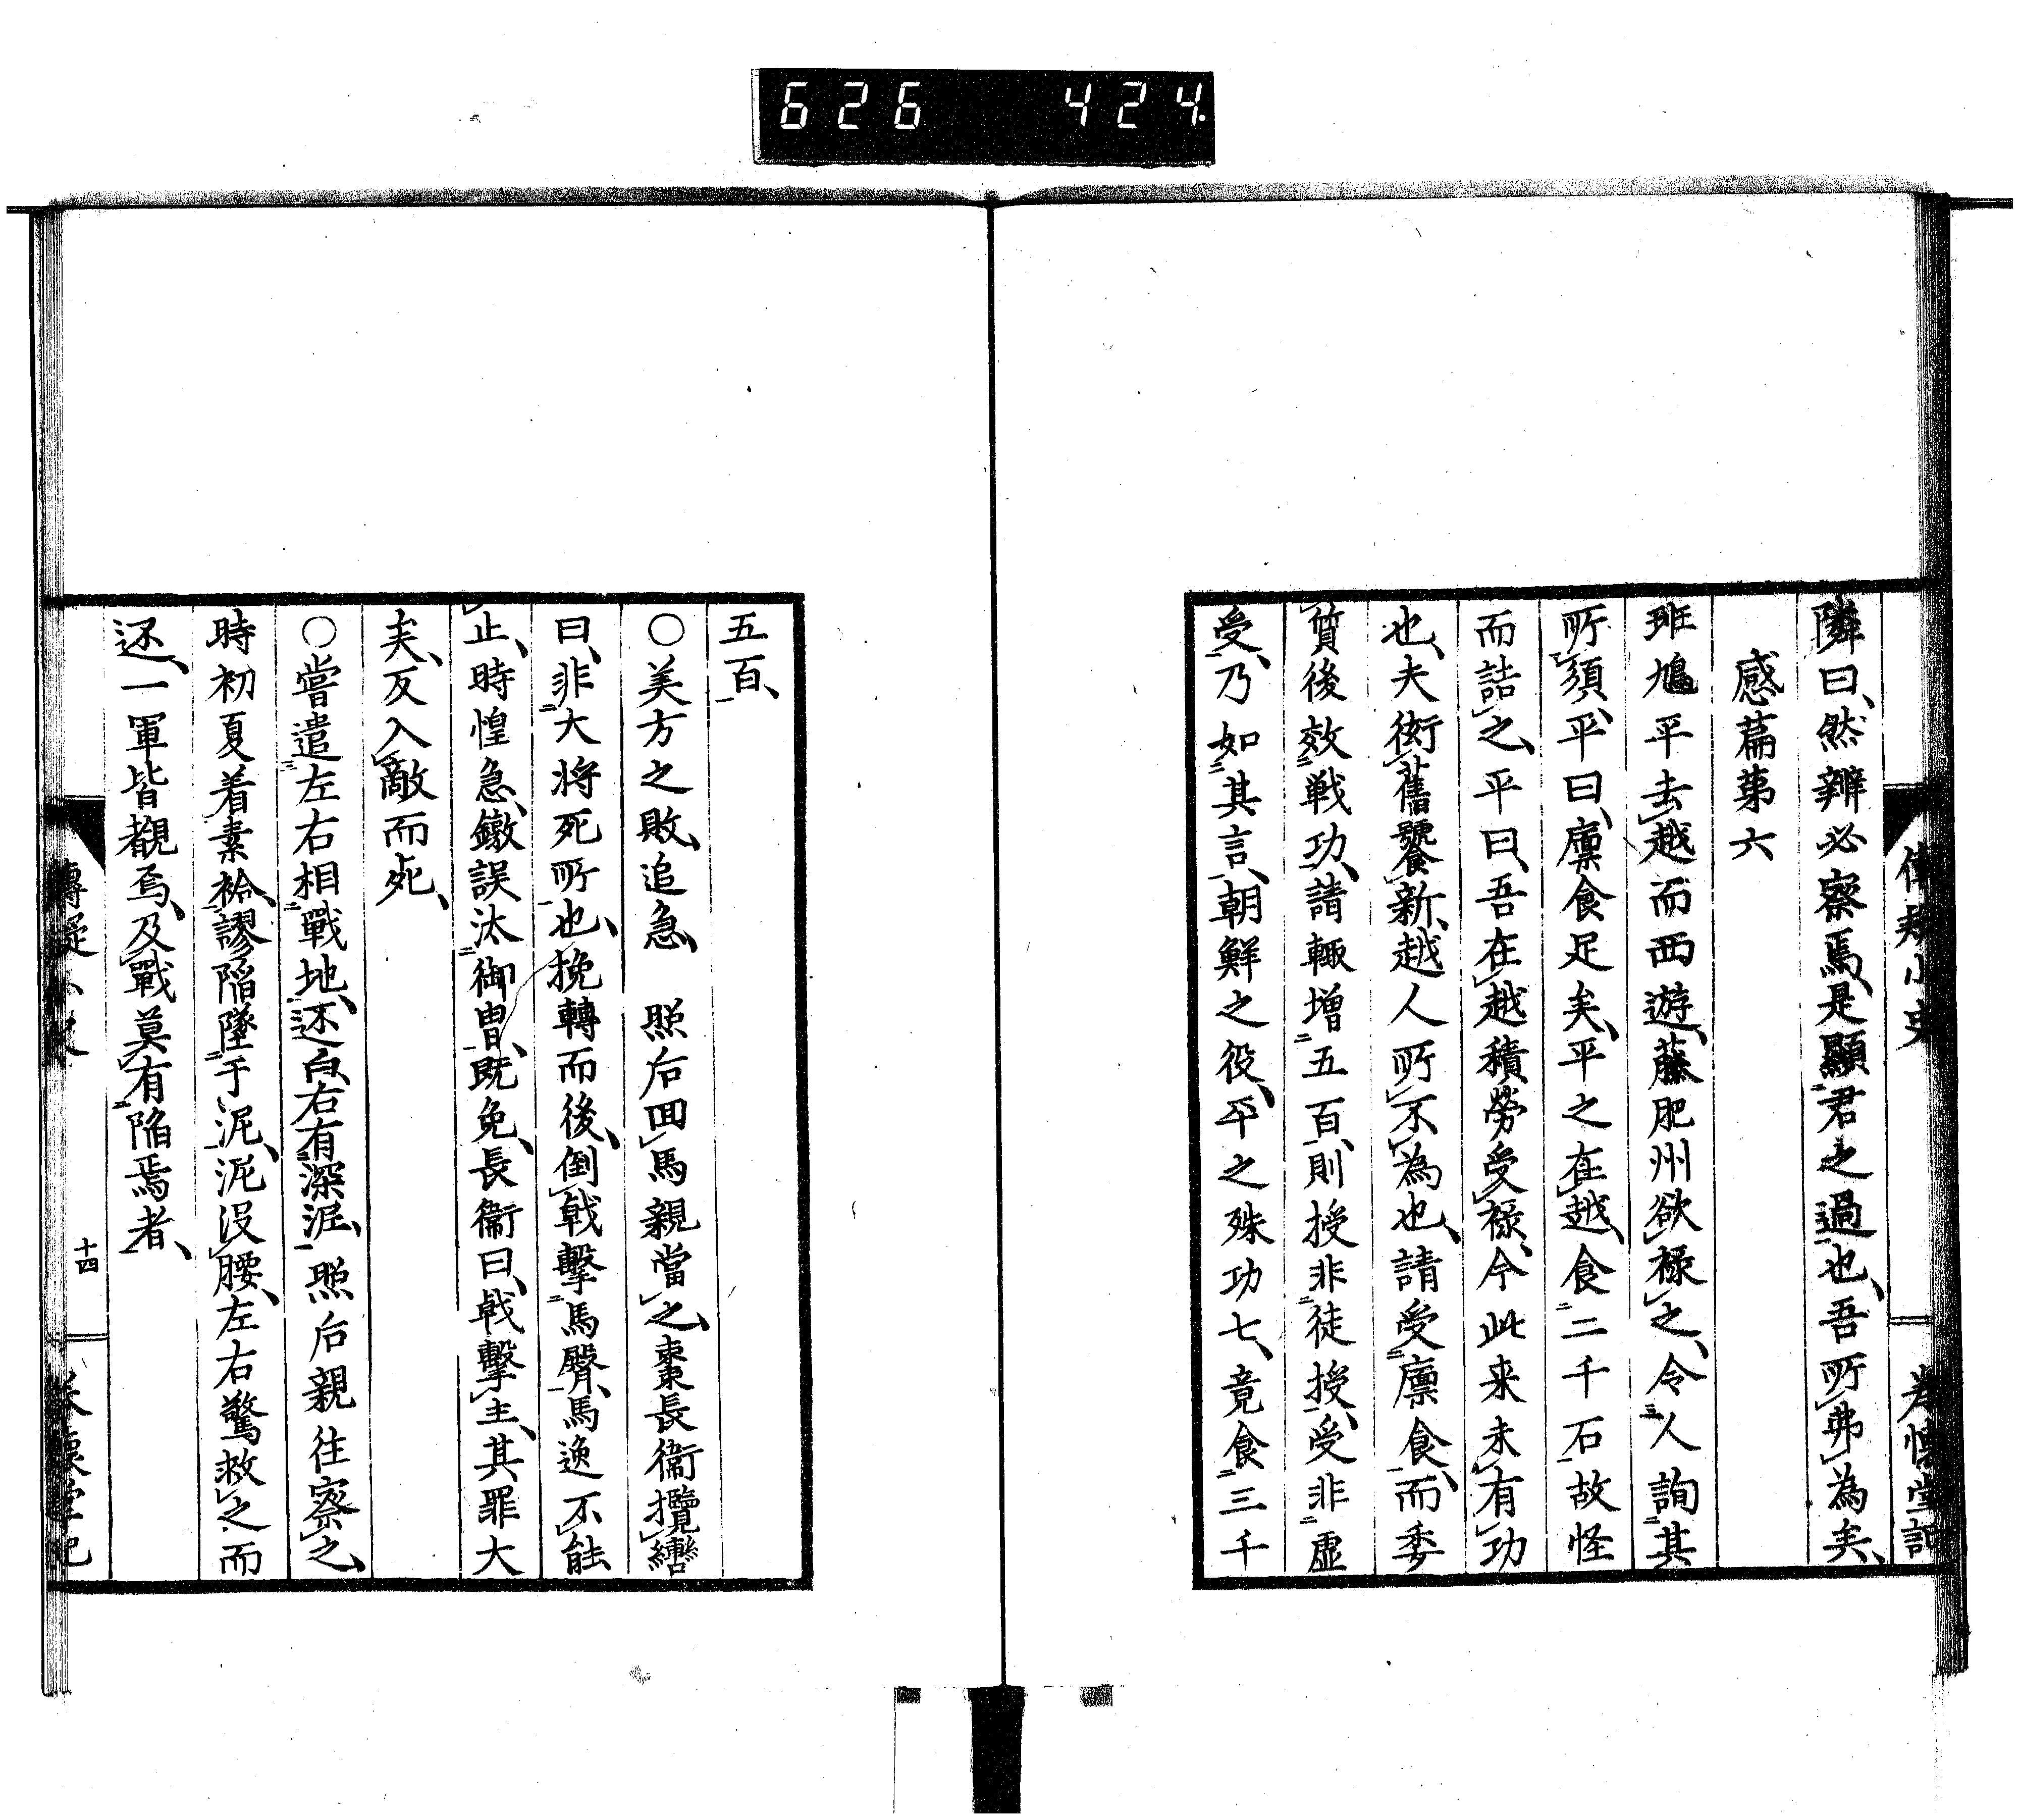 626 424.
隣曰、然辨必察焉、是顯君之過也、吾所弗為矣、
感篇第六
班鳩平去越而西遊、藤肥州欲祿之、令人詢其
所須、平曰、廩食足矣、平之在越、食二千石故怪
而詰之、平曰、吾在越積勞受祿、今此来未有功
也、夫衒舊饕新、越人所不為也、請受廩食、而委
質後效戦功、請輙增五百、則授非徒授、受非虛
受、乃如其言、朝鮮之役、平之殊功七、竟食三千
五百、
○美方之敗、追急、照后回馬親當之、棗長衞攬轡
曰、非大将死所也、挽轉而後、倒戟擊馬臀、馬逸不能
止、時惶急、鐓誤汰御冑、既免、長衞曰、戟擊主、其罪大
矣、反入敵而死、
○嘗遣左右相戰地、还白、右有深泥、照后親往察之、
時初夏着素袷、謬陥墜于泥、泥没腰、左右驚救之而
还、一軍皆覩焉、及戰莫有陥焉者、
十四